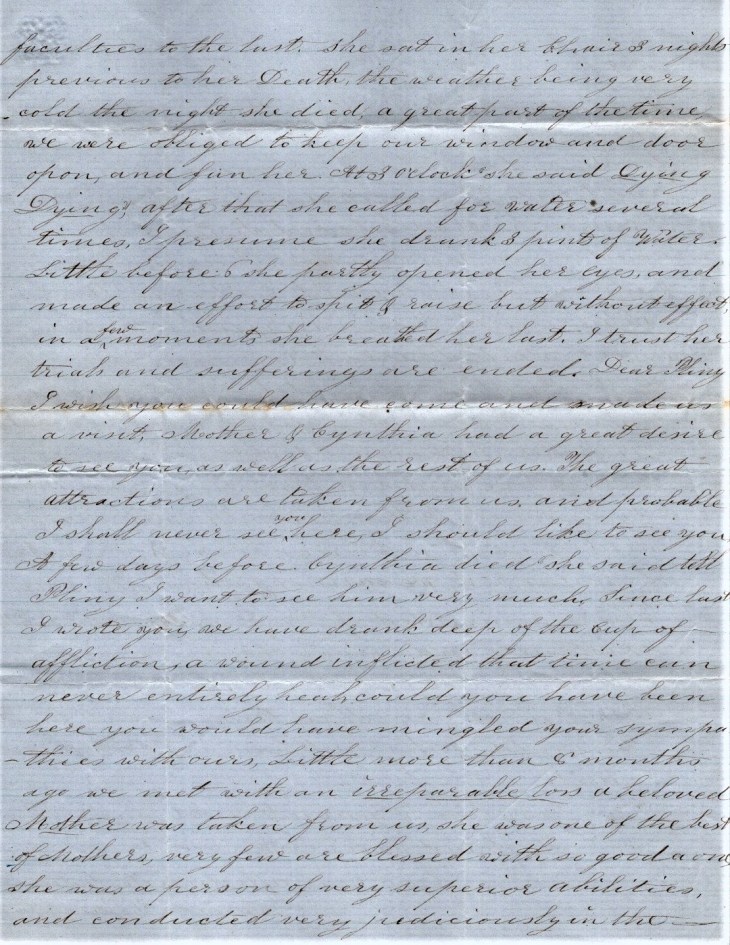 faculties to the last. She sat in her Chair 3 nights
previous to her Death, the weather being very
cold the night she died, a great part of the time
we were obliged to keep our window and door
opon, and fan her. At 3 o'clock she said Dying
Dying, after that she called for water several
times, I presume she drank 3 pints of Water.
Little before 6 she partly opened her eyes, and
made an effort to spit & raise but without effect,
in a few moments she breathed her last. I trust her
trials and sufferings are ended. Dear Pliny
I wish you could have come and made us
a visit, Mother & Cynthia had a great desire
to see you, as well as the rest of us. The great
attractions are taken from us, and probable
I shall never see you here, I should like to see you
A few days before Cynthia died she said tell
Pliny I want to see him very much, Since last
I wrote you, we have drank deep of the Cup of —
affliction, a wound inflicted that time can
never entirely heal, could you have been
here you would have mingled your sympa
-thies with ours, Little more than 8 months
ago we met with an irreparable loss a beloved
Mother was taken from us, she was one of the best
of Mothers, very few are blessed with so good a one,
she was a person of very superior abilities,
and conducted very judiciously in the —